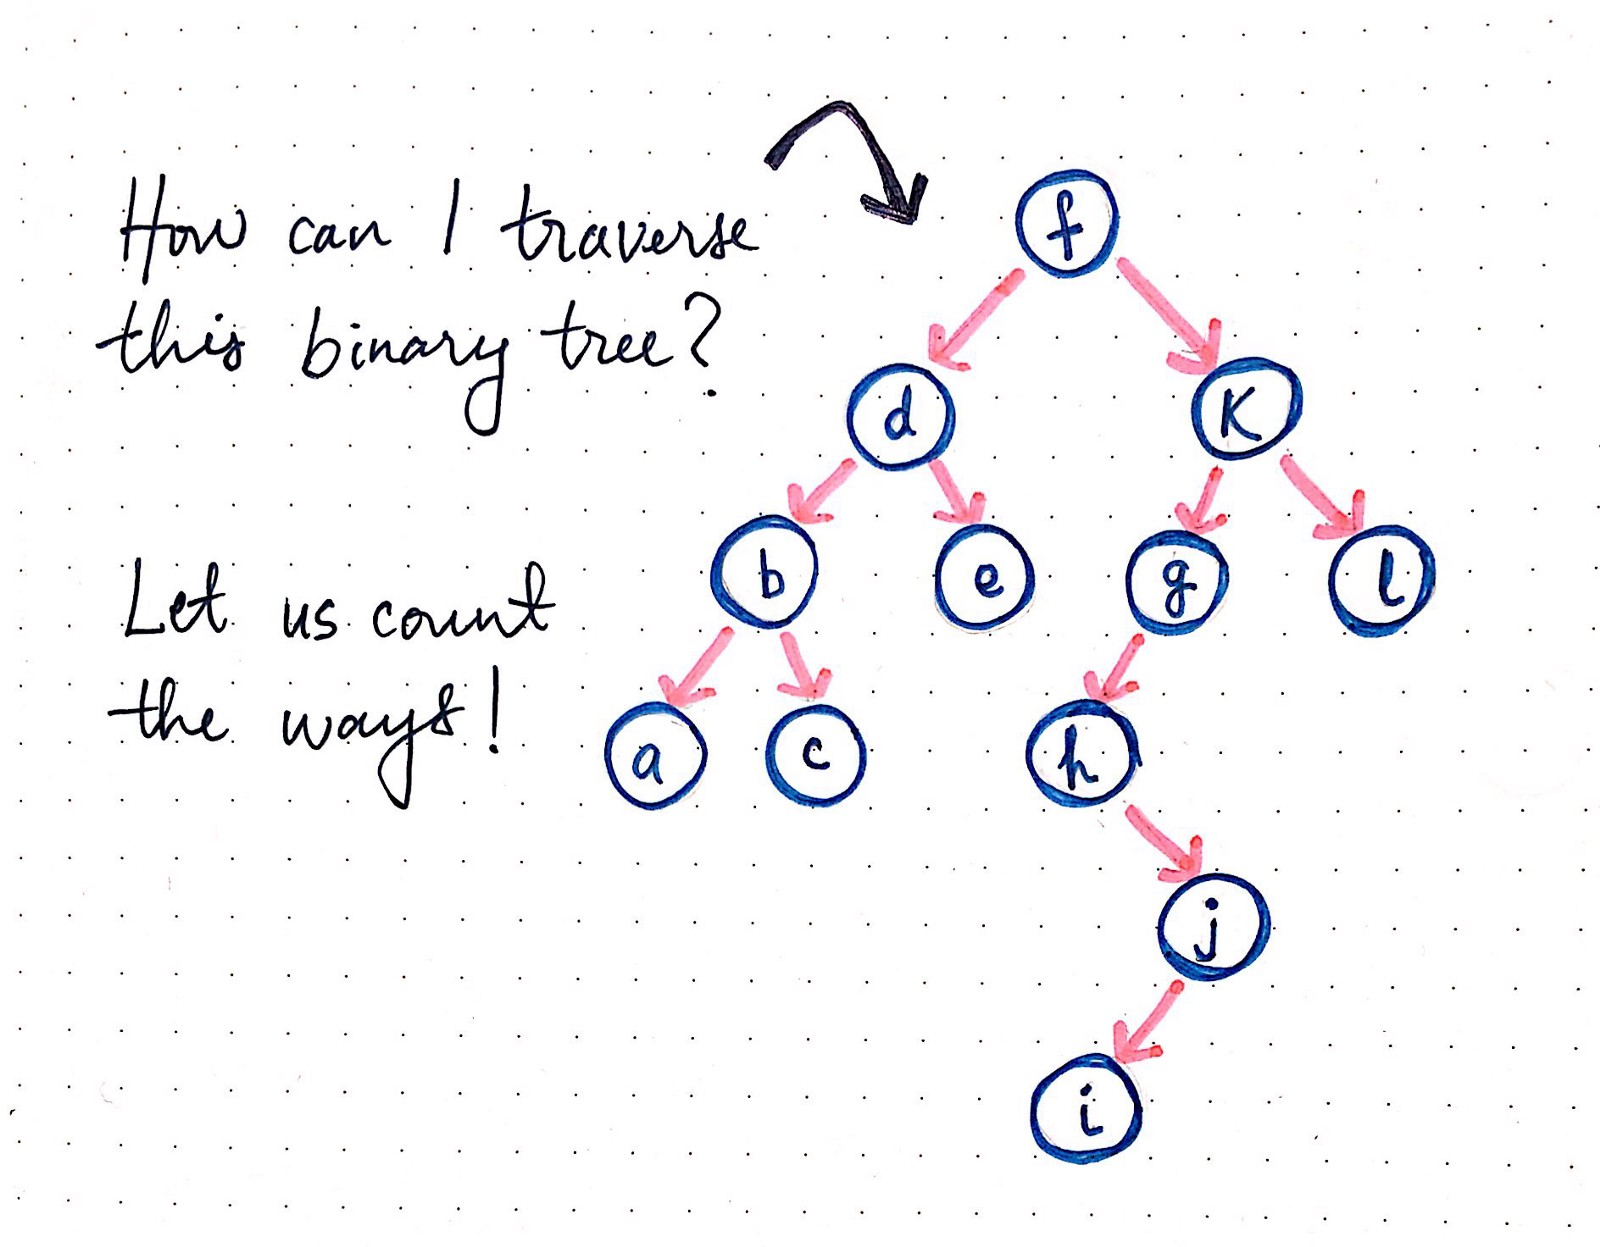 How can I traverse
this binary tree?
Let us count
the ways!
f
d
K
b
e
g
l
a
c
h
j
i